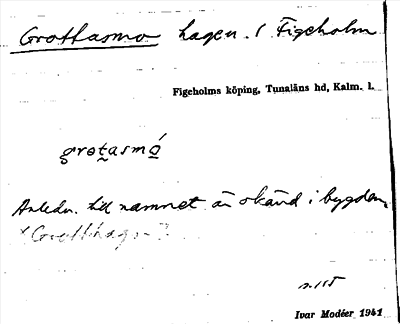 Grottasmo hagen. i Figeholm
Figeholms köping, Tunaläns hd, Kalm. l.
grotasmó
Anledn. till namnet är okänd i bygden.
s. 115
Ivar Modéer 1941